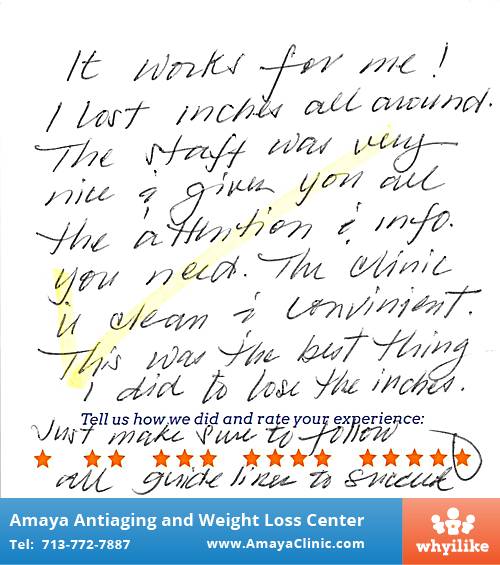 It works for me!
I lost inches all around.
The staff was very
nice & gives you all
the attention & info.
you need. The clinic
is clean & convinient.
This was the best thing
I did to lose the inches.
Tell us how we did and rate your experience:
Just make sure to follow
all guide lines to succeed
Amaya Antiaging and Weight Loss Center
Tel: 713-772-7887 www.AmayaClinic.com
whyilike